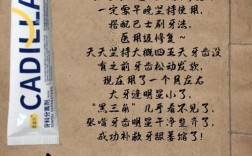 一定要早晚坚持使用,
搭配巴士刷牙法,
医用级修复~
天天坚持大概四五天牙齿没
有之前牙齿松动发软,
现在用了一个月左右
大牙缝明显小了,
“黑三角”几乎看不见了,
张嘴牙齿明显干净整齐了,
成功补救牙龈萎缩了!
CADILLA
牙科分离剂